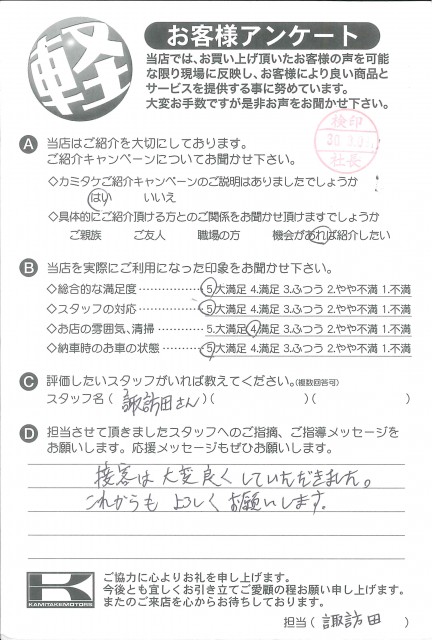 軽
お客様アンケート
当店では、お買い上げ頂いたお客様の声を可能
な限り現場に反映し、お客様により良い商品と
サービスを提供する事に努めています。
大変お手数ですが是非お声をお聞かせ下さい。
検印
社長
A 当店はご紹介を大切にしております。
ご紹介キャンペーンについてお聞かせ下さい。
◇カミタケご紹介キャンペーンのご説明はありましたでしょうか
はい いいえ
◇具体的にご紹介頂ける方とのご関係をお聞かせ頂けますでしょうか
ご親族 ご友人 職場の方 機会があれば紹介したい
B 当店を実際にご利用になった印象をお聞かせ下さい。
◇総合的な満足度‥‥‥‥ 5.大満足 4.満足 3.ふつう 2.やや不満 1.不満
◇スタッフの対応‥‥‥‥ 5.大満足 4.満足 3.ふつう 2.やや不満 1.不満
◇お店の雰囲気、清掃‥‥ 5.大満足 4.満足 3.ふつう 2.やや不満 1.不満
◇納車時のお車の状態‥‥ 5.大満足 4.満足 3.ふつう 2.やや不満 1.不満
C 評価したいスタッフがいれば教えてください。(複数回答可)
スタッフ名( 諏訪田さん )( )( )
D 担当させて頂きましたスタッフへのご指摘、ご指導メッセージを
お願いします。応援メッセージもぜひお願いします。
接客は大変良くしていただきました。
これからもよろしくお願いします。
KAMITAKEMOTORS
ご協力に心よりお礼を申し上げます。
今後とも宜しくお引き立てご愛顧の程お願い申し上げます。
またのご来店を心からお待ちしております。
担当( 諏訪田 )